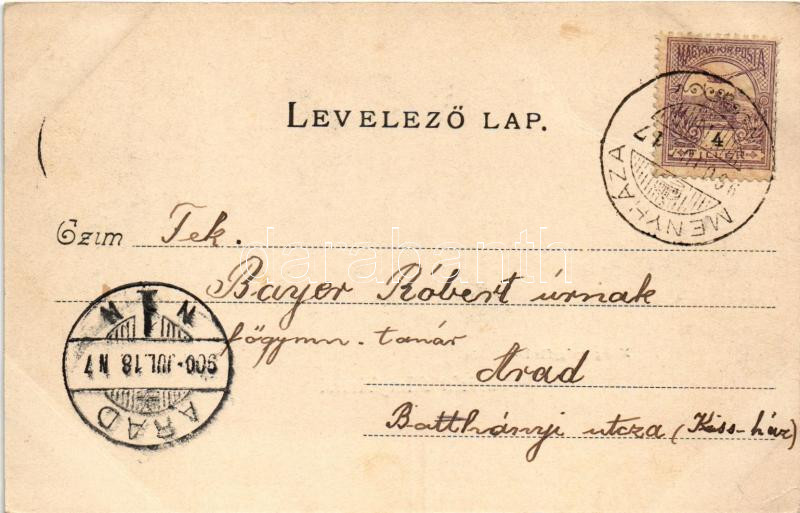 MAGYAR KIR. POSTA
4
FILLÉR
MENYHÁZA
LEVELEZŐ LAP.
Czim Tek.
Bayer Róbert úrnak
főgymn. tanár
Arad
Batthányi utcza (Kiss-ház)
900 JUL. 18. N 7
ARAD
darabanth